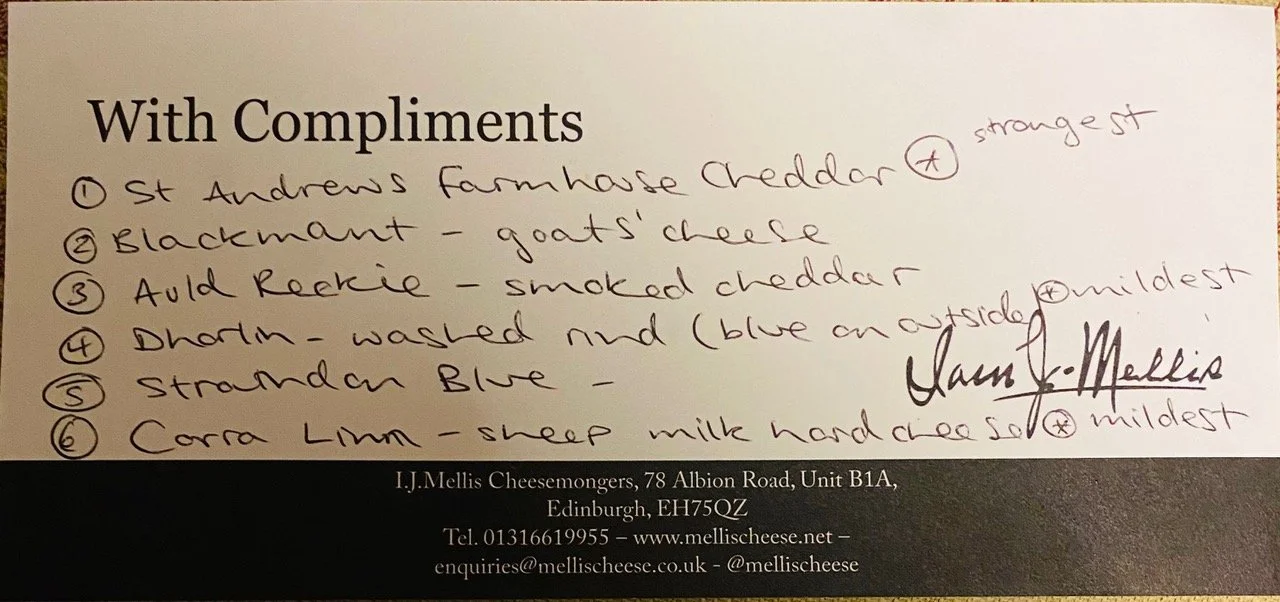 With Compliments
① St Andrews Farmhouse Cheddar ⊛ strongest
② Blackmant - goats' cheese
③ Auld Reekie - smoked cheddar
④ Dhorlin - washed rind (blue on outside) ⊛ mildest
⑤ Strathdon Blue -
Iain J. Mellis
⑥ Corra Linn - sheep milk hard cheese ⊛ mildest
I.J.Mellis Cheesemongers, 78 Albion Road, Unit B1A,
Edinburgh, EH75QZ
Tel. 01316619955 – www.mellischeese.net –
enquiries@mellischeese.co.uk - @mellischeese